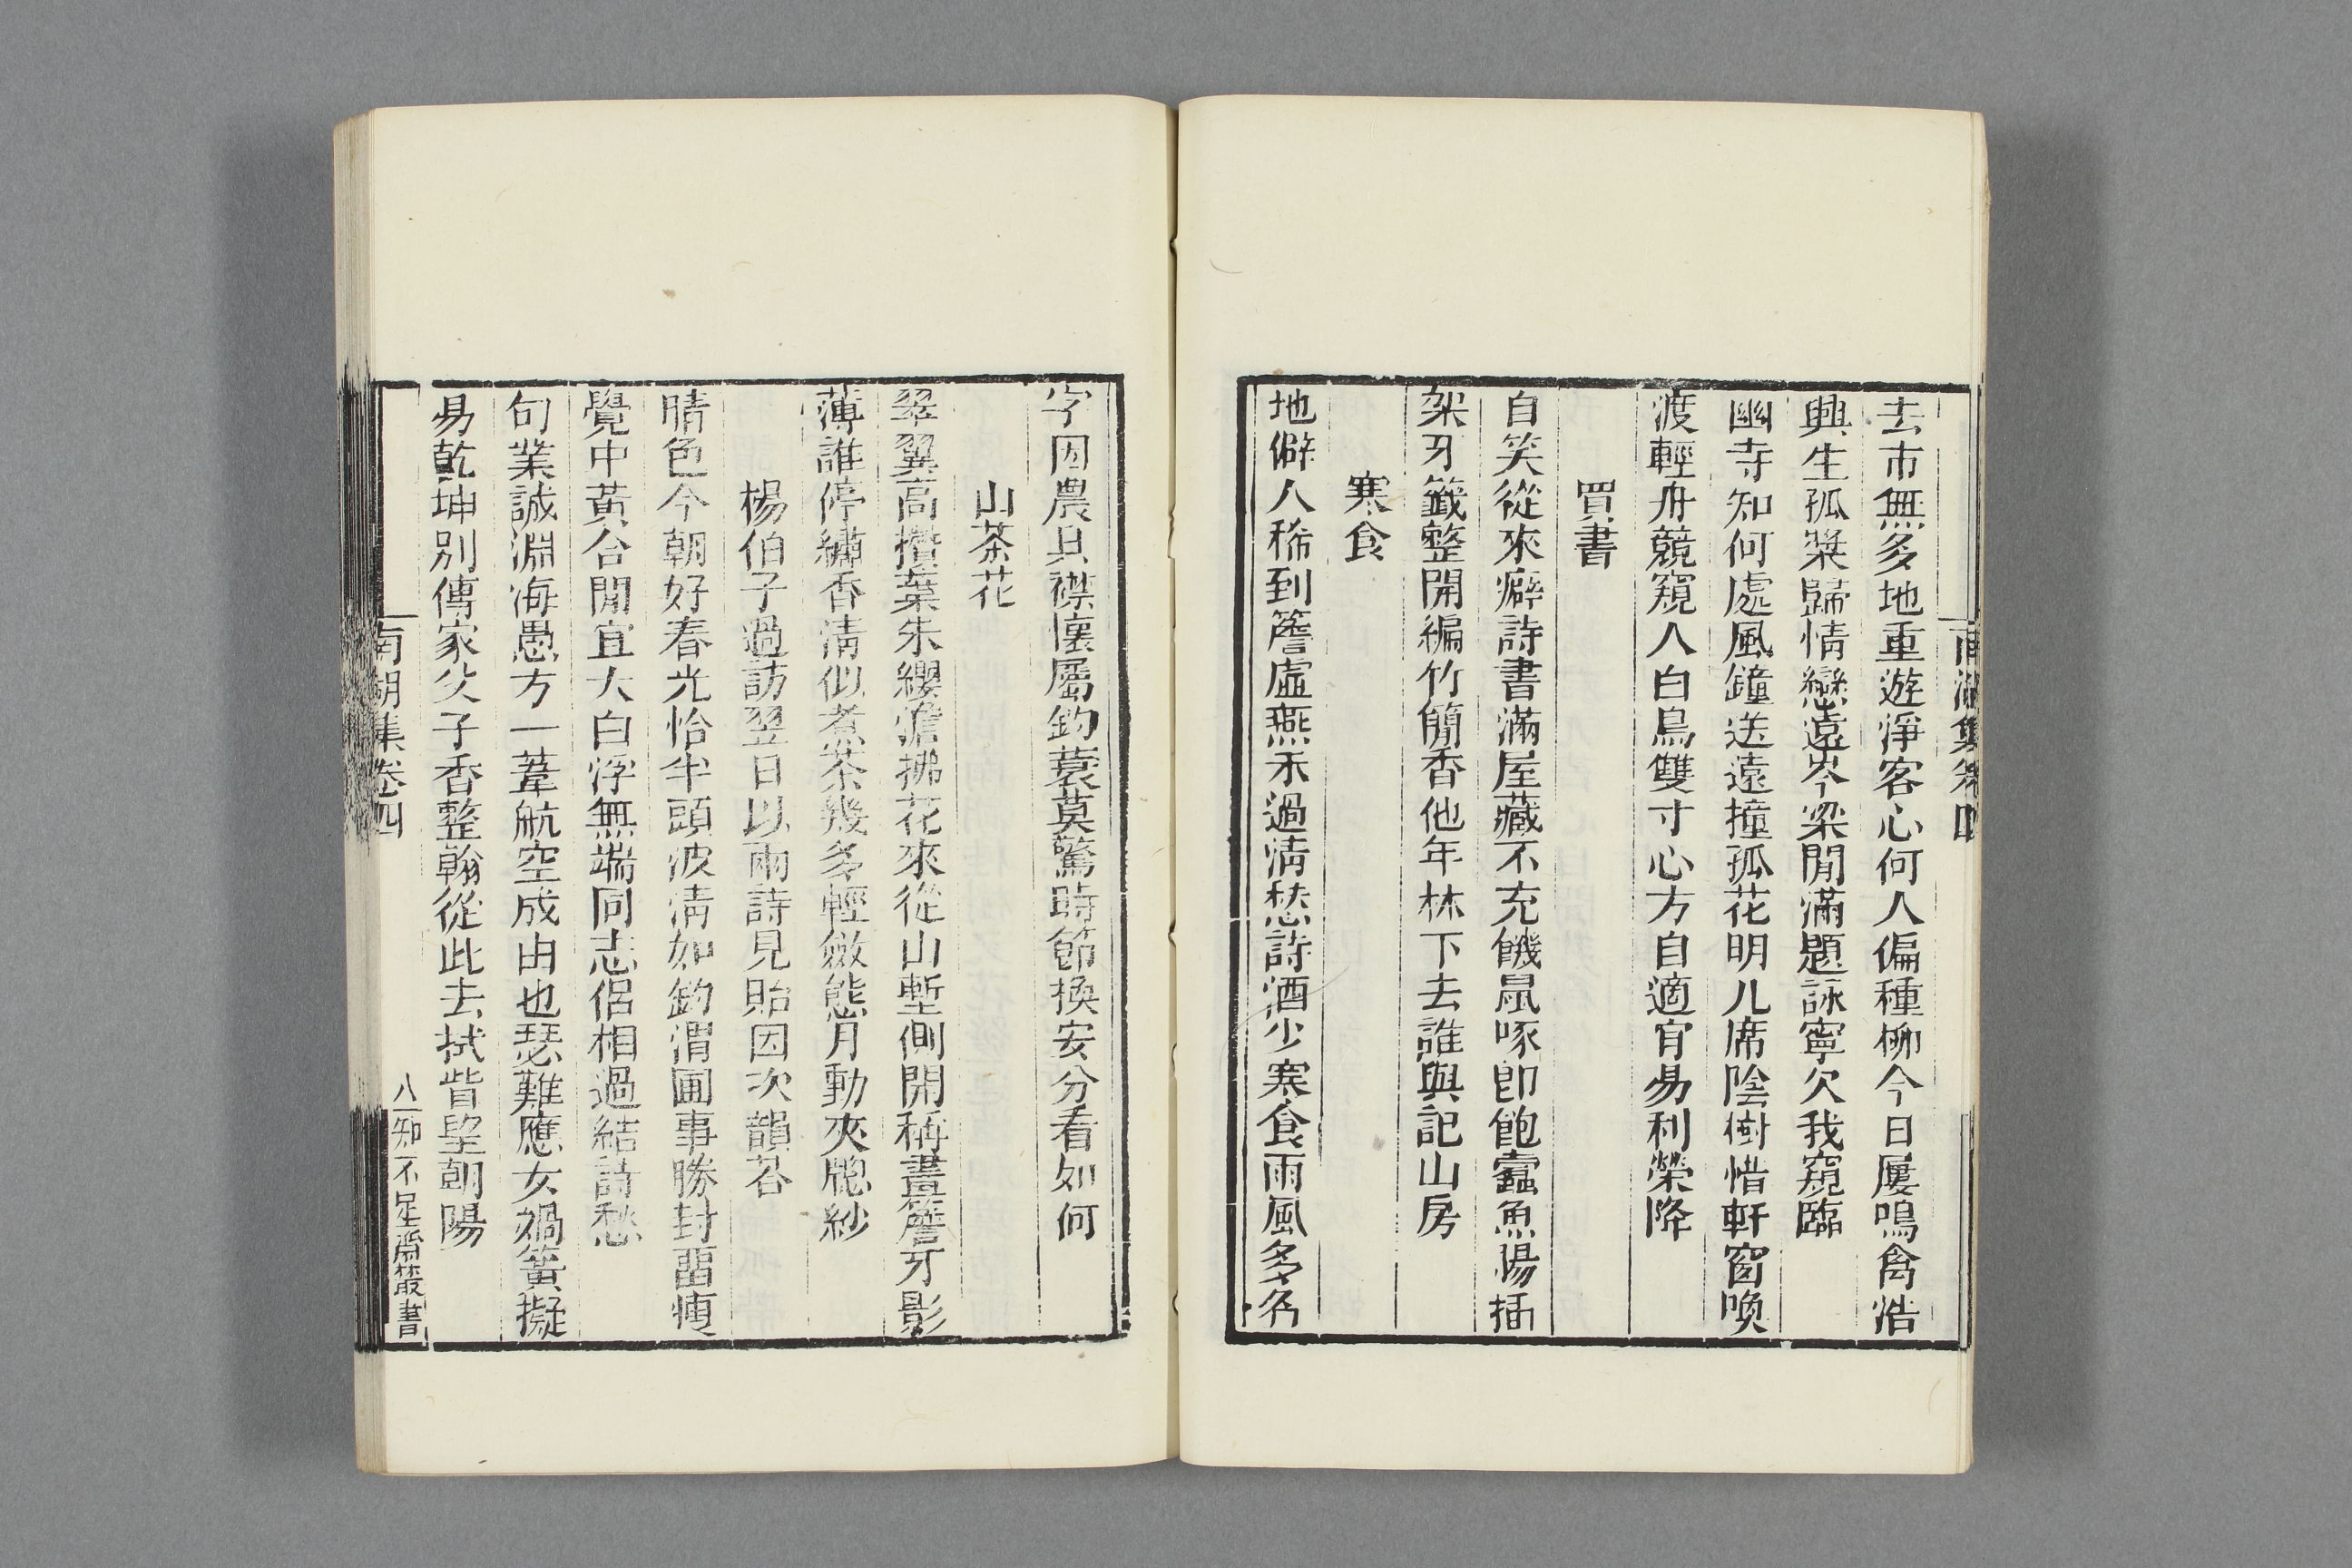 南湖集卷四
去市無多地重遊淨客心何人偏種柳今日屢鳴禽浩
興生孤槳歸情戀遠岑梁閒滿題詠寧欠我窺臨
幽寺知何處風鐘送遠撞孤花明几席陰樹惜軒窗喚
渡輕舟競窺人白鳥雙寸心方自適肯易利榮降
買書
自笑從來癖詩書滿屋藏不充饑鼠啄卽飽蠹魚腸插
架牙籤整開編竹簡香他年林下去誰與記山房
寒食
地僻人稀到簷虛燕未過淸愁詩酒少寒食雨風多名
字因農具襟懷屬釣蓑莫驚時節換安分看如何
山茶花
翠翼高攢葉朱纓儋拂花來從山塹側開稱畫簷牙影
薄誰停繡香淸似煮茶幾多輕斂態月動夾牕紗
楊伯子過訪翌日以兩詩見貽因次韻荅
晴色今朝好春光恰半頭波淸如釣渭圃事勝封畱瘦
覺中黃合閒宜大白浮無端同志侶相過結詩愁
句業誠淵海愚方一葦航空成由也瑟難應女媧簧擬
易乾坤別傳家父子香整翰從此去拭眥望朝陽
南湖集卷四
八
知不足齋叢書